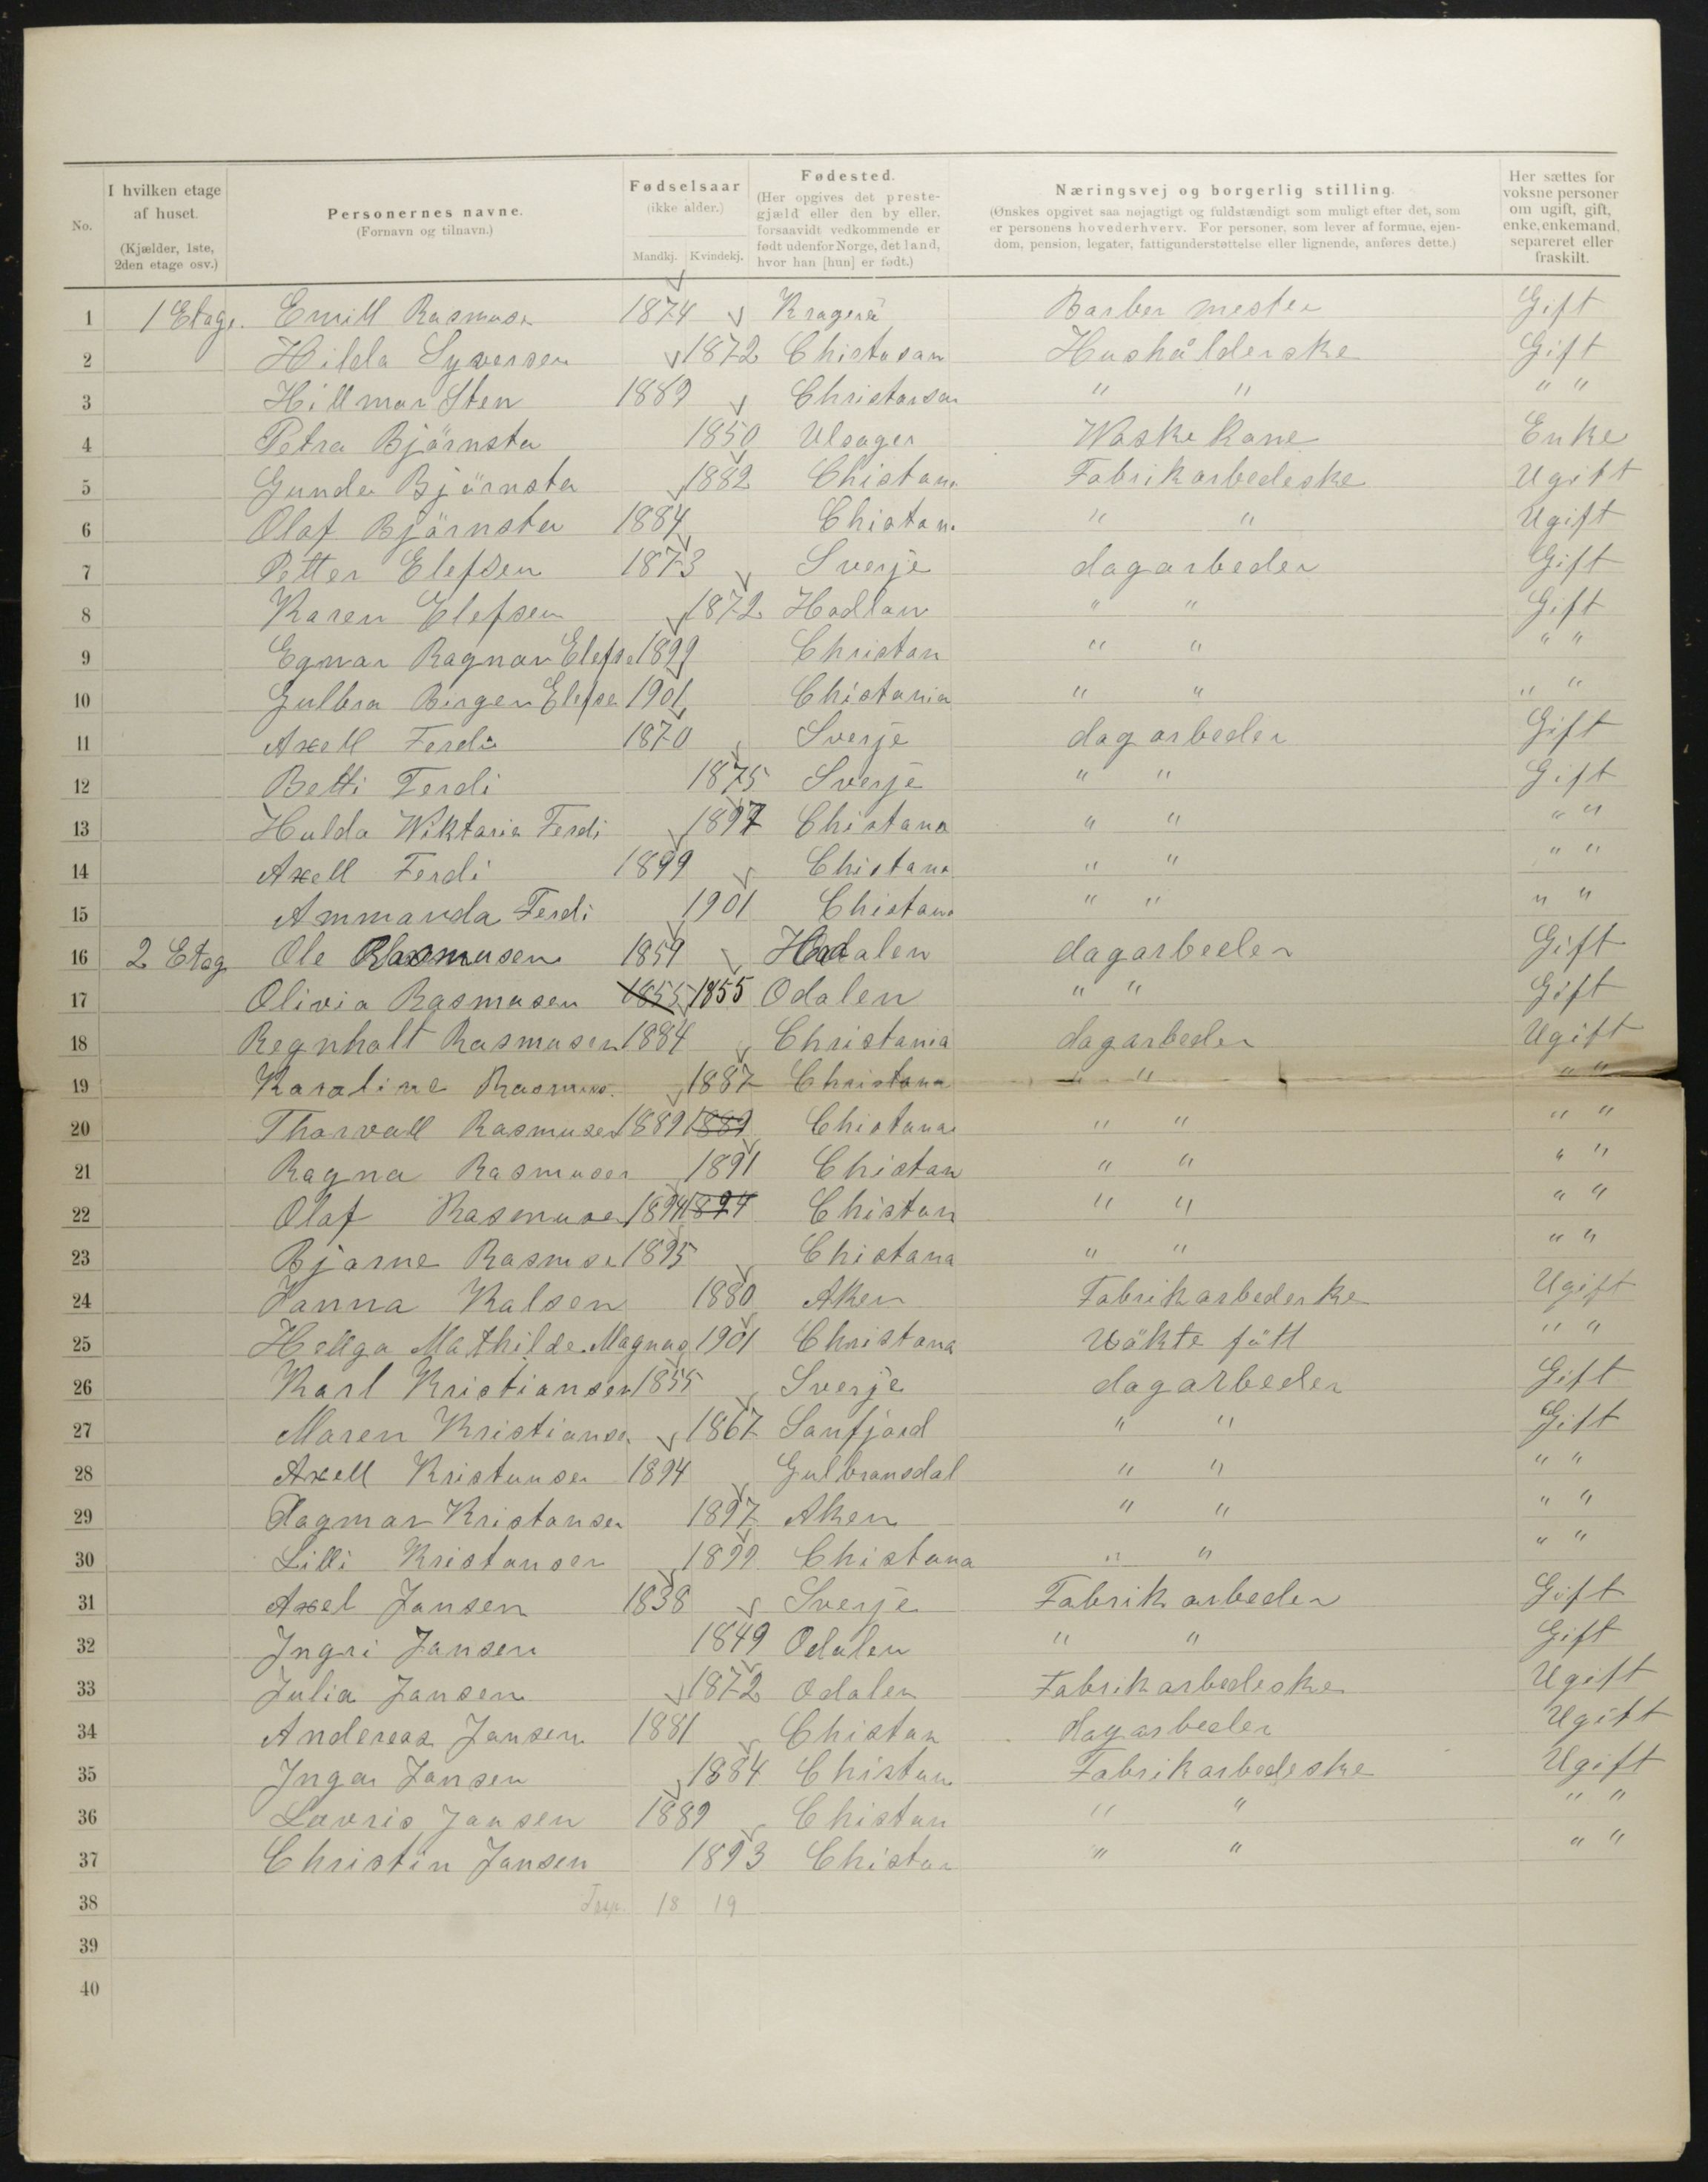 No.
I hvilken etage af huset.
(Kjælder, 1ste, 2den etage osv.)
Personernes navne.
(Fornavn og tilnavn.)
Fødselsaar
(ikke alder.)
Mandkj. Kvindekj.
Fødested.
(Her opgives det prestegjæld eller den by eller, forsaavidt vedkommende er født udenfor Norge, det land, hvor han [hun] er født.)
Næringsvej og borgerlig stilling.
(Ønskes opgivet saa nøjagtigt og fuldstændigt som muligt efter det, som er personens hovederhverv. For personer, som lever af formue, ejendom, pension, legater, fattigunderstøttelse eller lignende, anføres dette.)
Her sættes for voksne personer om ugift, gift, enke, enkemand, separeret eller fraskilt.
1 1 Etage. Emill Rasmusn 1874 Kragerä Barber mester Gift
2 Hilda Syversen 1872 Chistusan Hushålderske Gift
3 Hillmar Sten 1889 Christansan " " " "
4 Petra Bjärnsta 1850 Ulsager Waske Kone Enke
5 Gunda Bjärnsta 1882 Chistan Fabrikarbedeske Ugift
6 Olaf Bjärnsta 1884 Chistan " " Ugift
7 Petter Elefsen 1873 Sverje dagarbeder Gift
8 Karen Elefsen 1872 Hadlan " " Gift
9 Egnar Ragnar Elefse 1899 Christan " " " "
10 Gulbra Birger Elefse 1901 Chistania " " " "
11 Axell Ferdi 1870 Sverje dagarbeder Gift
12 Betti Ferdi 1875 Sverje " " Gift
13 Hulda Wiktaria Ferdi 1897 Chistana " " " "
14 Axell Ferdi 1899 Chistana " " " "
15 Ammanda Ferdi 1901 Chistana " " " "
16 2 Etag Ole Rasmusen 1859 Hadalen dagarbeder Gift
17 Olivia Rasmusen 1855 1855 Odalen " " Gift
18 Regnhalt Rasmusen 1884 Christania dagarbeder Ugift
19 Karoline Rasmus. 1887 Christana " " " "
20 Thorvall Rasmusen 1889 1889 Chistana " " " "
21 Ragna Rasmusen 1891 Chistan " " " "
22 Olaf Rasmuse 1894 1894 Chistan " " " "
23 Bjarne Rasmse 1895 Chistana " " " "
24 Janna Kalsen 1880 Aken Fabrikarbederke Ugift
25 Hellga Mathilde Magnus 1901 Christana Uäkte fätt " "
26 Karl Kristiansen 1855 Sverje dagarbeder Gift
27 Maren Kristianse 1867 Sanfjord " " Gift
28 Axell Kristansen 1894 Gulbransdal " " " "
29 Dagmar Kristansen 1897 Aken " " " "
30 Lilli Kristansen 1899 Chistana " " " "
31 Axel Jansen 1838 Sverje Fabrik arbeder Gift
32 Ingri Jansen 1849 Odalen " " Gift
33 Julia Jansen 1872 Odalen Fabrikarbedeske Ugift
34 Andereas Jansen 1881 Chistan dagarbeder Ugift
35 Inga Jansen 1884 Chistan Fabrikarbedeske Ugift
36 Lavris Jansen 1889 Chistan " " " "
37 Christin Jansen 1893 Chistan " " " "
38 18 19
39
40